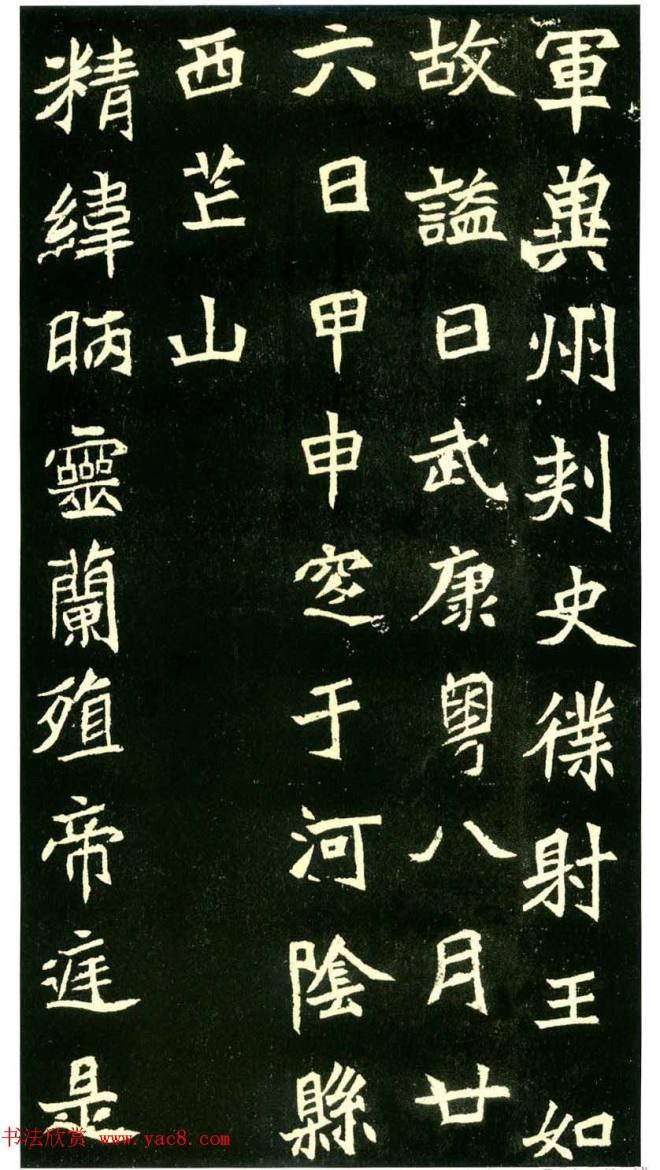 軍冀州刺史僕射王如
故謚曰武康粤八月廿
六日甲申窆于河陰縣
西芒山
精緯昞靈蘭殖帝庭是
书法欣赏 www.yac8.com